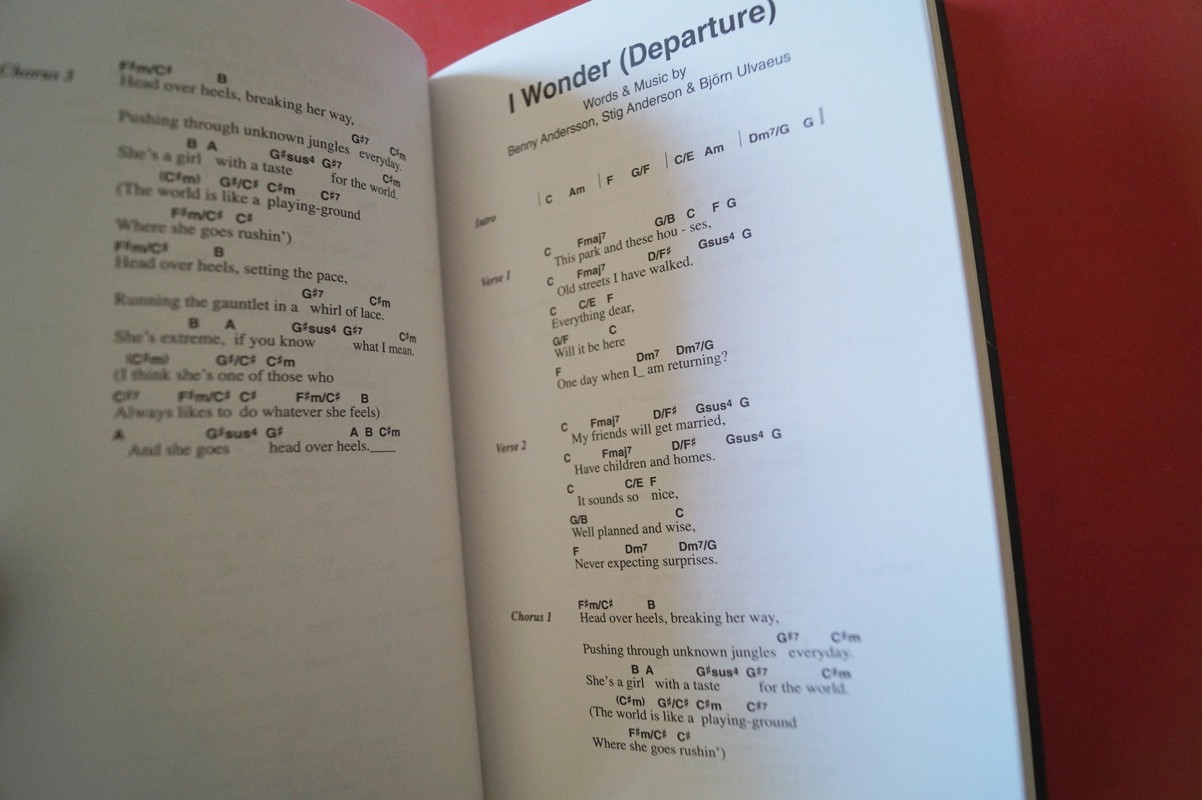 Chorus 3
F♯m/C♯ B
Head over heels, breaking her way,
G♯7 C♯m
Pushing through unknown jungles everyday.
B A G♯sus4 G♯7 C♯m
She's a girl with a taste for the world.
(C♯m) G♯/C♯ C♯m C♯7
(The world is like a playing-ground
F♯m/C♯ C♯
Where she goes rushin')
F♯m/C♯ B
Head over heels, setting the pace,
G♯7 C♯m
Running the gauntlet in a whirl of lace.
B A G♯sus4 G♯7 C♯m
She's extreme, if you know what I mean.
(C♯m) G♯/C♯ C♯m
(I think she's one of those who
C♯7 F♯m/C♯ C♯ F♯m/C♯ B
Always likes to do whatever she feels)
A G♯sus4 G♯ A B C♯m
And she goes head over heels.___
I Wonder (Departure)
Words & Music by
Benny Andersson, Stig Anderson & Björn Ulvaeus
Intro | C Am | F G/F | C/E Am | Dm7/G G |
C Fmaj7 G/B C F G
Verse 1 This park and these hou - ses,
C Fmaj7 D/F♯ Gsus4 G
Old streets I have walked.
C C/E F
Everything dear,
G/F C
Will it be here
F Dm7 Dm7/G
One day when I_ am returning?
C Fmaj7 D/F♯ Gsus4 G
Verse 2 My friends will get married,
C Fmaj7 D/F♯ Gsus4 G
Have children and homes.
C C/E F
It sounds so nice,
G/B C
Well planned and wise,
F Dm7 Dm7/G
Never expecting surprises.
F♯m/C♯ B
Chorus 1 Head over heels, breaking her way,
G♯7 C♯m
Pushing through unknown jungles everyday.
B A G♯sus4 G♯7 C♯m
She's a girl with a taste for the world.
(C♯m) G♯/C♯ C♯m C♯7
(The world is like a playing-ground
F♯m/C♯ C♯
Where she goes rushin')